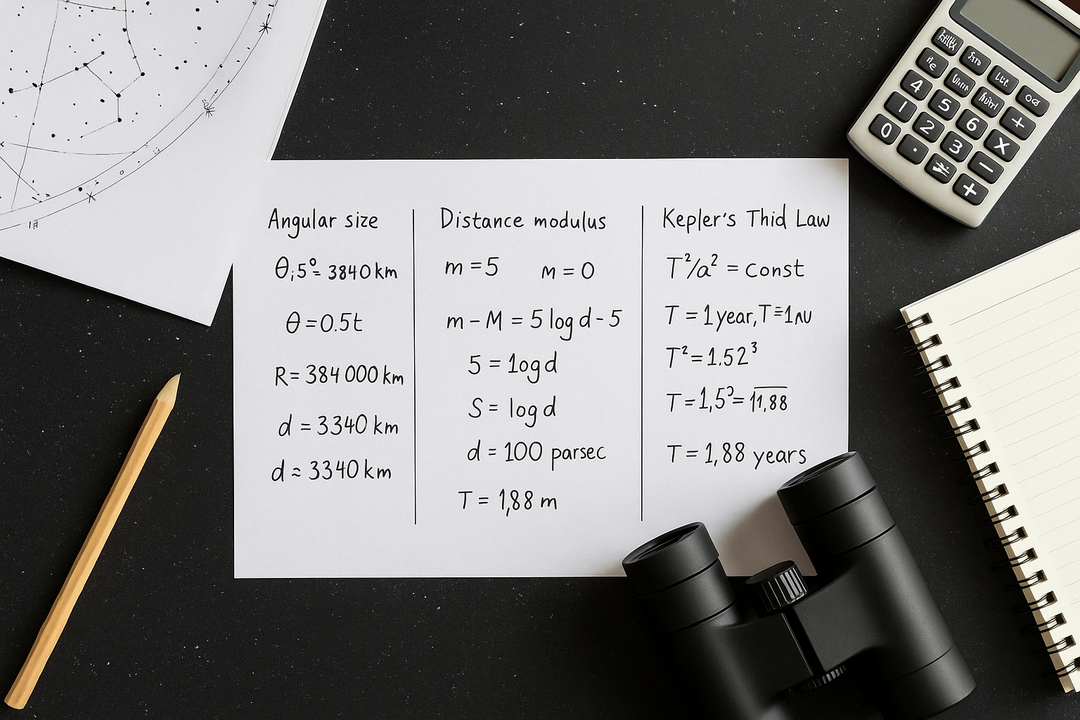 Angular size
θ;5°= 3840 km
θ = 0.5t
R = 384 000 km
d = 3340 km
d ≈ 3340 km
Distance modulus
m = 5 m = 0
m – M = 5 log d - 5
5 = 1ogd
S = log d
d = 100 parsec
T = 1,88 m
Kepler's Thid Law
T²/a² = const
T = 1 year, T=1AU
T² = 1.52³
T = 1,5³= √11,88
T = 1,88 years
4 5 6 +
1 2 3 X
0 . −
+